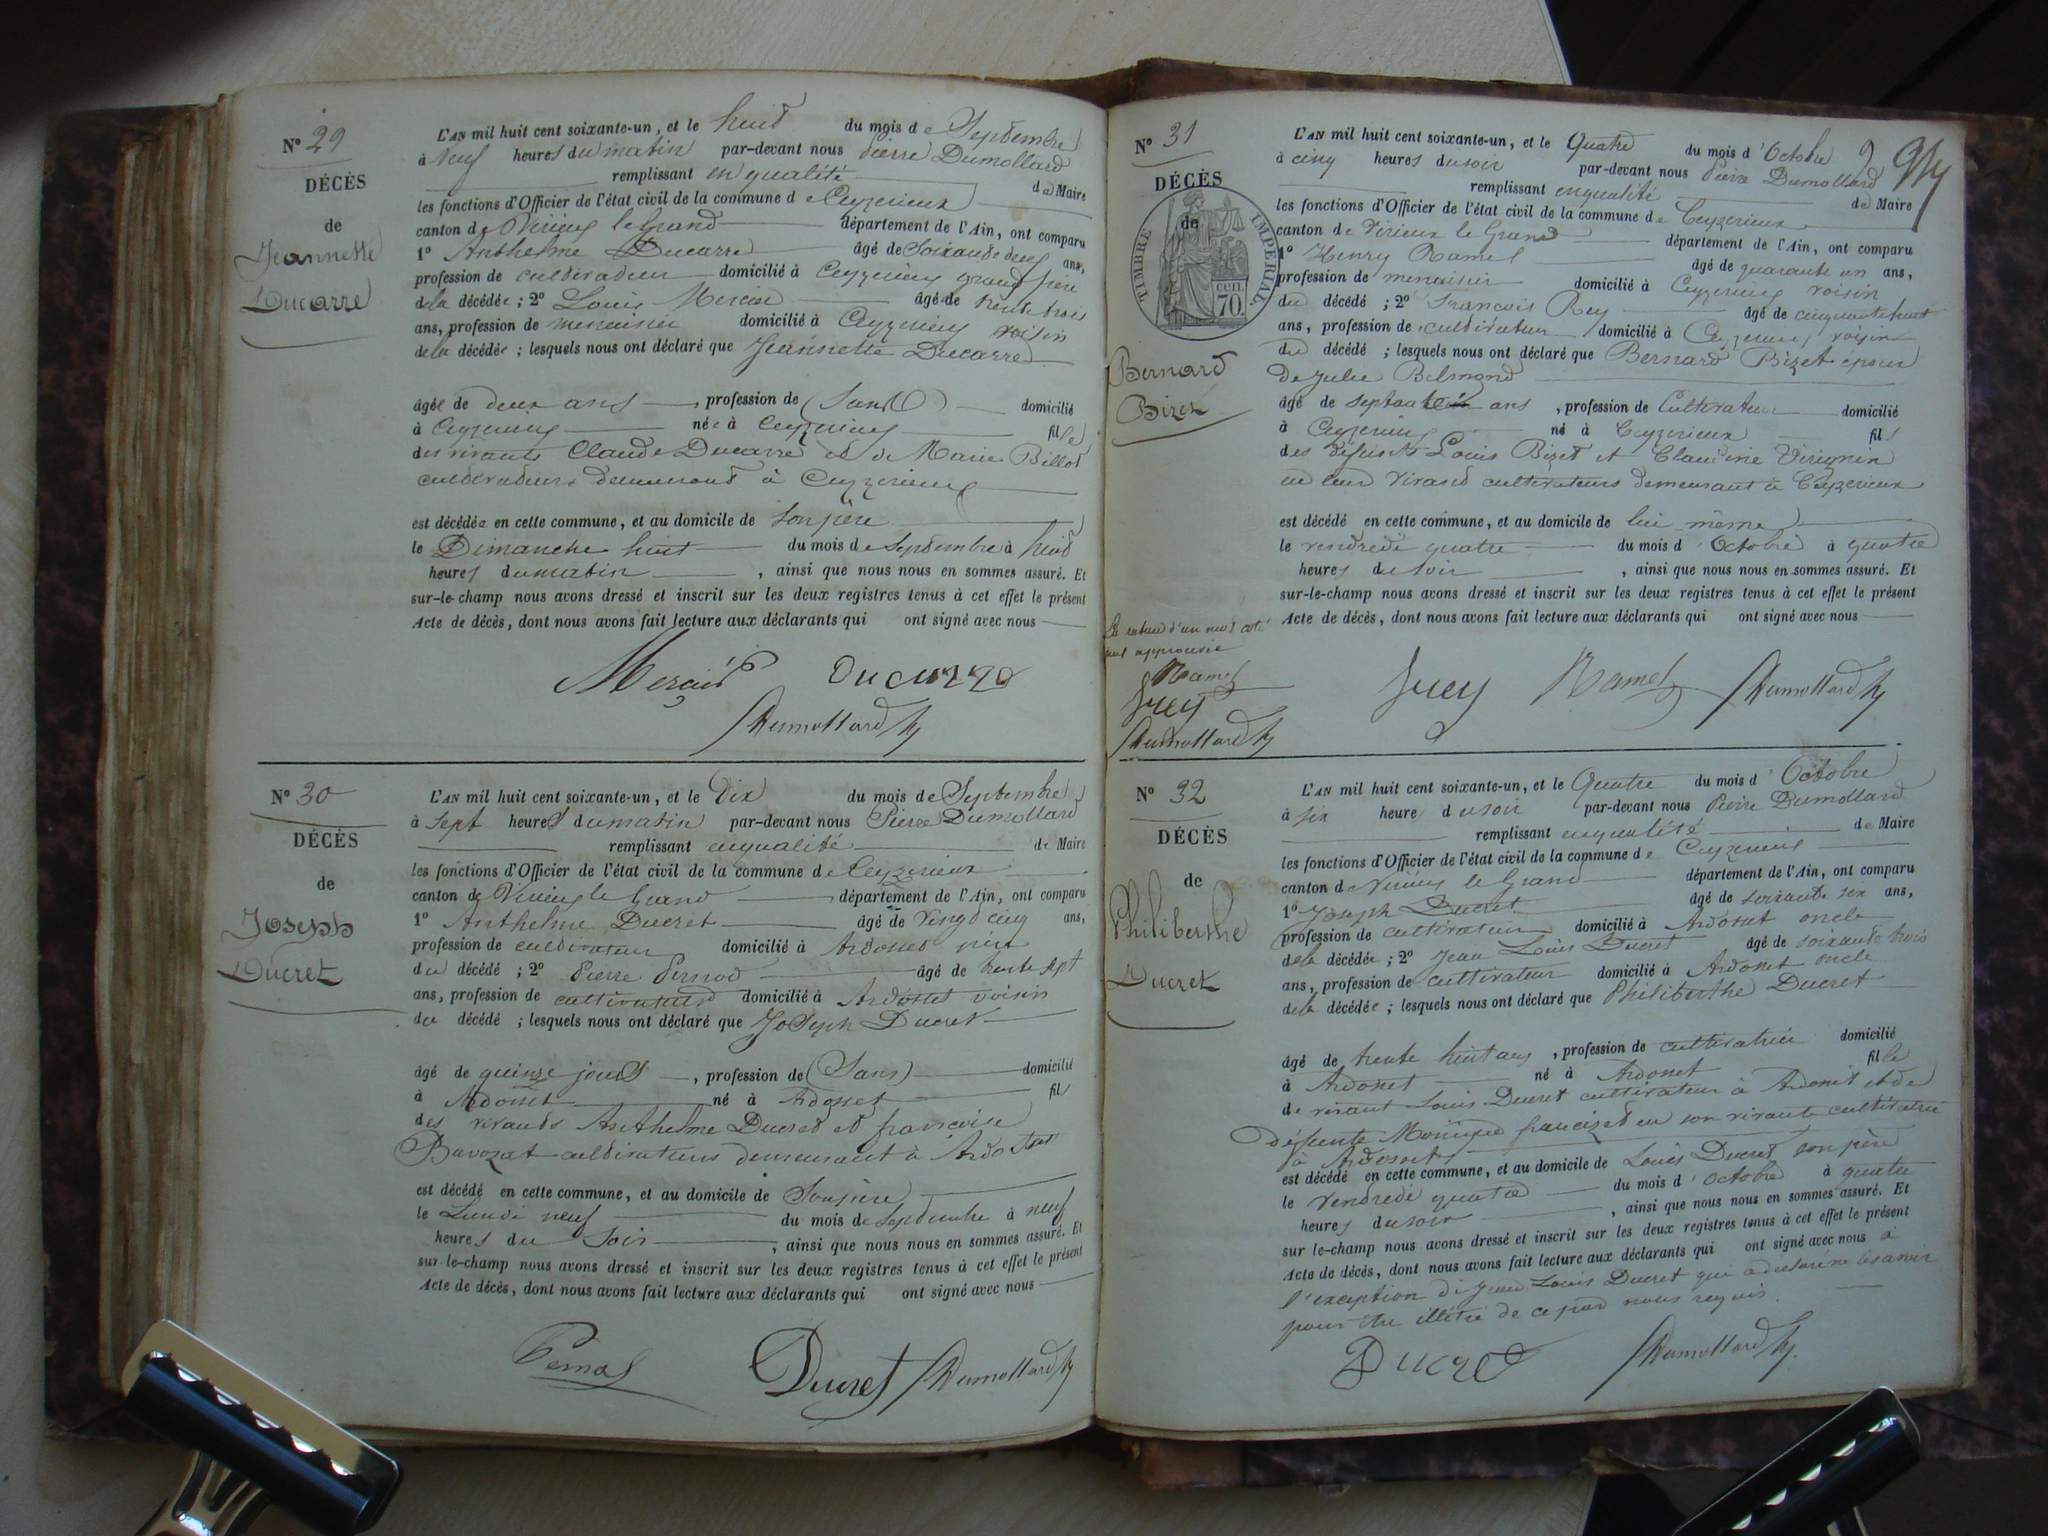 N° 29
DÉCÈS
de
Jeannette
Ducarre
L'AN mil huit cent soixante-un, et le huit du mois de Septembre
à Neuf heures du matin par-devant nous Pierre Dumollard
remplissant en qualité de Maire
les fonctions d'Officier de l'état civil de la commune de Ceyzerieux
canton de Virieu le Grand département de l'Ain, ont comparu
1° Anthelme Ducarre âgé de Soixante deux ans,
profession de cultivateur domicilié à Ceyzerieu grand père
de la décédée ; 2° Louis Mercier âgé de trente trois
ans, profession de menuisier domicilié à Ceyzerieu voisin
de la décédée ; lesquels nous ont déclaré que Jeannette Ducarre
âgée de deux ans , profession de (Sans) domicilié
à Ceyzerieu née à Ceyzerieu fille
des vivants Claude Ducarre et de Marie Billot
cultivateurs demeurant à Ceyzerieu
est décédée en cette commune, et au domicile de son père
le Dimanche huit du mois de Septembre à huit
heures du matin , ainsi que nous nous en sommes assuré. Et
sur-le-champ nous avons dressé et inscrit sur les deux registres tenus à cet effet le présent
Acte de décès, dont nous avons fait lecture aux déclarants qui ont signé avec nous
Mercier Ducarre
Dumollard
N° 30
DÉCÈS
de
Joseph
Ducret
L'AN mil huit cent soixante-un, et le Dix du mois de Septembre
à Sept heures du matin par-devant nous Pierre Dumollard
remplissant en qualité de Maire
les fonctions d'Officier de l'état civil de la commune de Ceyzerieux
canton de Virieu le Grand département de l'Ain, ont comparu
1° Anthelme Ducret âgé de Vingt cinq ans,
profession de cultivateur domicilié à Ardosset père
du décédé ; 2° Pierre Pernod âgé de trente sept
ans, profession de cultivateur domicilié à Ardosset voisin
du décédé ; lesquels nous ont déclaré que Joseph Ducret
âgé de quinze jours , profession de (Sans) domicilié
à Ardosset né à Ardosset fils
des vivants Anthelme Ducret et françoise
Bavozat cultivateurs demeurant à Ardosset
est décédé en cette commune, et au domicile de Son père
le Lundi neuf du mois de Septembre à neuf
heures du Soir , ainsi que nous nous en sommes assuré. Et
sur-le-champ nous avons dressé et inscrit sur les deux registres tenus à cet effet le présent
Acte de décès, dont nous avons fait lecture aux déclarants qui ont signé avec nous
Ducret Dumollard
N° 31
DÉCÈS
de
TIMBRE IMPERIAL
CEN. 70.
Bernard
Bizet
L'AN mil huit cent soixante-un, et le Quatre du mois d'Octobre
à cinq heures du soir par-devant nous Pierre Dumollard
remplissant en qualité de Maire
les fonctions d'Officier de l'état civil de la commune de Ceyzerieux
canton de Virieux le Grand département de l'Ain, ont comparu
1° Henry Ramel âgé de quarante un ans,
profession de menuisier domicilié à Ceyzerieu voisin
du décédé ; 2° François Rey âgé de cinquante huit
ans, profession de cultivateur domicilié à Ceyzerieu voisin
du décédé ; lesquels nous ont déclaré que Bernard Bizet époux
de Julie Belmond
âgé de septante ans , profession de Cultivateur domicilié
à Ceyzerieu né à Ceyzerieux fils
des défunts Louis Bizet et Claudine Virignin
en leur vivant cultivateurs demeurant à Ceyzerieux
est décédé en cette commune, et au domicile de lui même
le vendredi quatre du mois d'Octobre à quatre
heures du soir , ainsi que nous nous en sommes assuré. Et
sur-le-champ nous avons dressé et inscrit sur les deux registres tenus à cet effet le présent
Acte de décès, dont nous avons fait lecture aux déclarants qui ont signé avec nous
La rature d'un mot
approuvée
Ramel
Dumollard
Ramel Dumollard
N° 32
DÉCÈS
de
Philiberthe
Ducret
L'AN mil huit cent soixante-un, et le Quatre du mois d'Octobre
à six heure du soir par-devant nous Pierre Dumollard
remplissant en qualité de Maire
les fonctions d'Officier de l'état civil de la commune de Ceyzerieu
canton de Virieu le Grand département de l'Ain, ont comparu
1° Joseph Ducret âgé de soixante six ans,
profession de cultivateur domicilié à Ardosset oncle
de la décédée ; 2° Jean Louis Ducret âgé de soixante trois
ans, profession de cultivateur domicilié à Ardosset oncle
de la décédée ; lesquels nous ont déclaré que Philiberthe Ducret
âgé de trente huit ans , profession de cultivatrice domicilié
à Ardosset né à Ardosset fille
de vivant Louis Ducret cultivateur à Ardosset et de
défunte Monique francizet en son vivante cultivatrice
à Ardosset
est décédé en cette commune, et au domicile de Louis Ducret son père
le Vendredi quatre du mois d'Octobre à quatre
heures du soir , ainsi que nous nous en sommes assuré. Et
sur le-champ nous avons dressé et inscrit sur les deux registres tenus à cet effet le présent
Acte de décès, dont nous avons fait lecture aux déclarants qui ont signé avec nous à
l'exception de Jean Louis Ducret qui a déclaré ne le savoir
pour être illétré de ce par nous requis.
Ducret Dumollard